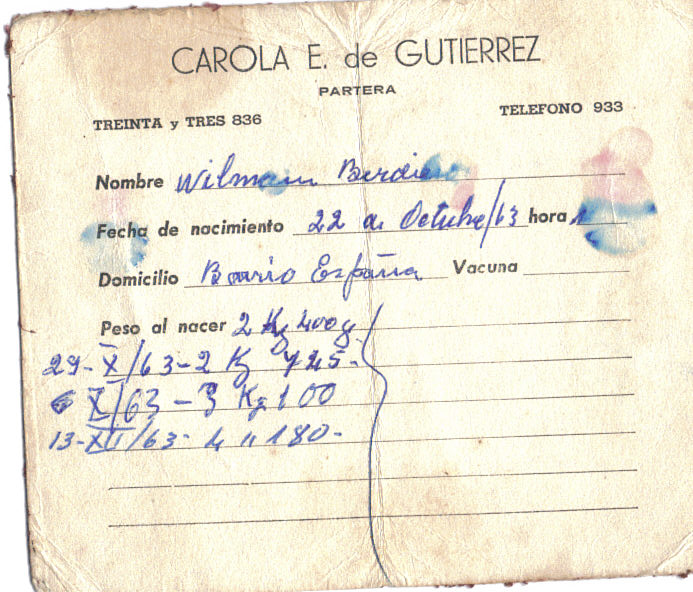 CAROLA E. de GUTIERREZ
PARTERA
TREINTA y TRES 836 TELEFONO 933
Nombre Wilman
Fecha de nacimiento 22 de Octubre/63 hora
Domicilio Barrio España Vacuna
Peso al nacer 2 Kg 400g
29-X/63-2 Kg 745-
6 XI/63-3 Kg 100
13-XII/63-4 " 180-